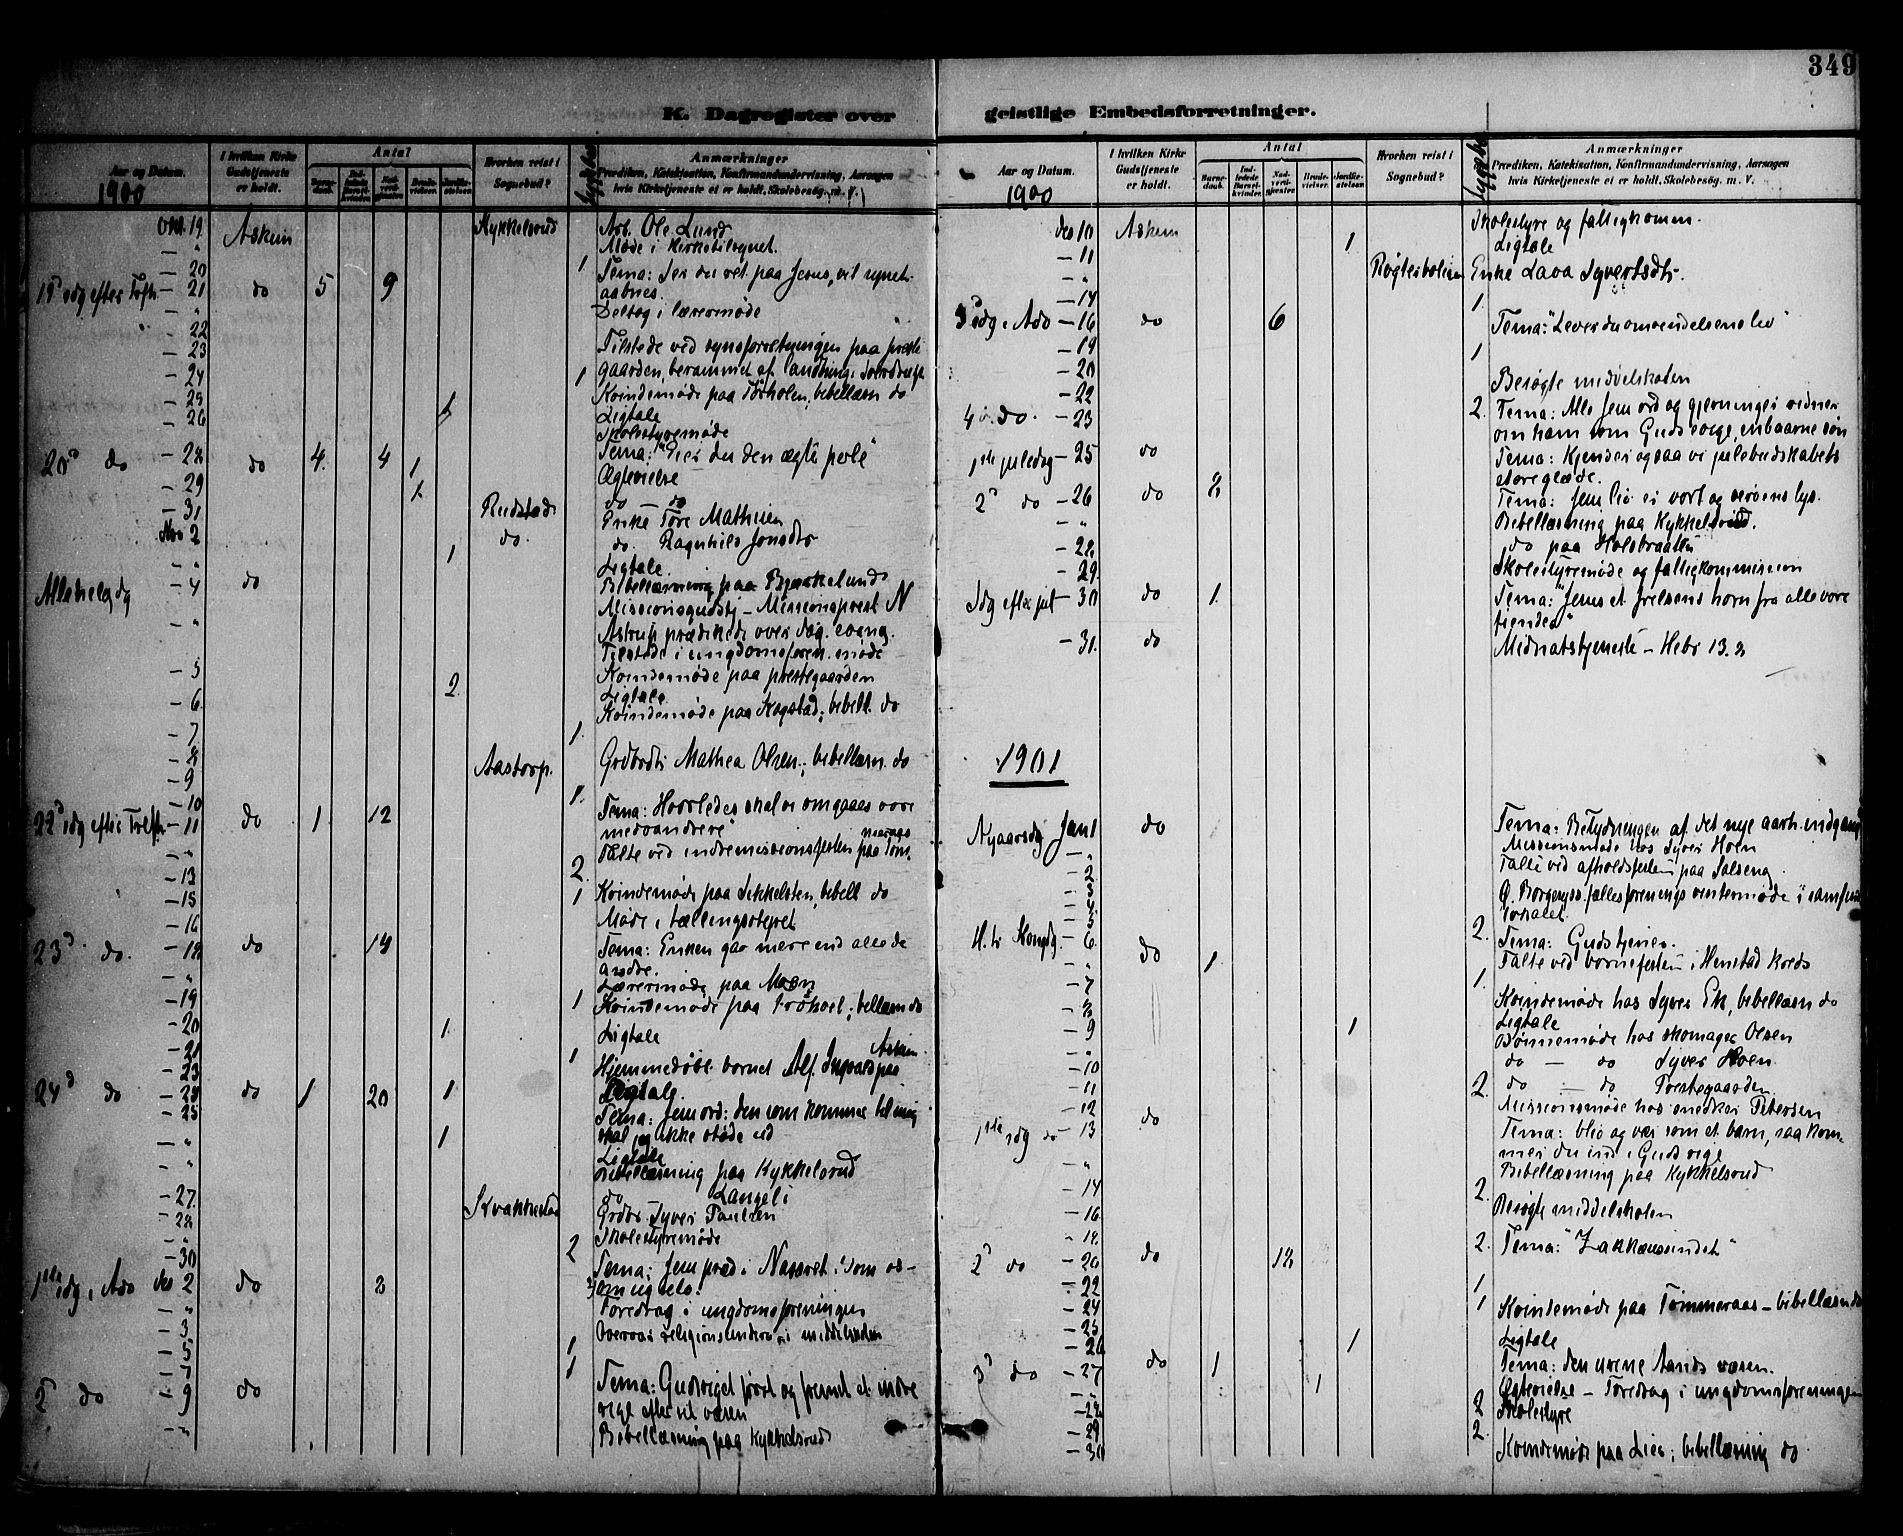 349
K. Dagregister over geistlige Embedsforretninger.
Aar og Datum.
1900
I hvilken Kirke Gudstjeneste er holdt.
Antal
Barnedaab.
Indledede Barselkvinder.
Nadverdgjester
Brudevielser.
Jordfæstelser.
Hvorhen reist i Sognebud?
Anmærkninger
Prædiken, Katekisation, Konfirmandundervisning, Aarsagen
hvis Kirketjeneste ei er holdt, Skolebesøg, m. V.
Okt 19 Askim Kykkelsrud Arb. Ole Lund
— " Møde i kirketilsynet.
— 20 1
19d sdg efter Trefh — 21 do 5 9 Tema: Ser du ret paa Jesus, vil synet
aabnes.
— " Deltog i lærermøde
— 22
— 23 Tilstede ved synsforretningen paa preste
— 24 1 gaarden, berammet af
— 25 Kvindemøde paa bibellæsn do
— 26 1 Ligtale
Skolestyremøde
20d do — 28 do 4 4 1 Tema: "Eier du den ægte perle"
Ægtevielse
— 29 do — do
— 31 Rudstad Enke Tore Mathisen
Nov 2 do. do. Ragnhild Jonsdtr
— " 1 Ligtale
Bibellæsning paa Bjørkelund
Allehelgdg — 4 do Missionsgudstj — Missionsprest N
Astrup prædikede over dag. evang.
— " Tilstede i ungdomsforen. møde
— 5 Kvindemøde paa prestegaarden
2 Ligtale
— 6 Kvindemøde paa Kogstad; bibell. do
— 7 1.
— 8 Aastorp. Grdbrdtr Mathea Olsen; bibellæsn. do
— 9
— 10 1.
22d sdg efter Trefh — 11 do 1 12 Tema: Hvorledes skal vi omgaaes vore
medvandrere"
— " Talte ved indremissionsfesten paa
2
— 13 1 Kvindemøde paa Sekkelsten, bibell do
— 15
— 16 Møde i tællingsstyret
23d do. — 18 do 14 Tema: Enken gav mere end alle de
andre.
— " Lærermøde paa Moen
— 19 1 Kvindemøde paa
— 20 1. Ligtale
— 21 1 Askim
— 23 Hjemmedøbt barnet Alf Ingvald paa
24d do — 25 do 1 20 1 Ligtale
— 25 Tema: Jesu ord: den som kommer til mig
skal jeg ikke støde ud
— " 1 Ligtale
— " Bibellæsning paa Kykkelsrud
— 27. do Langeli
— 28 Grdbr. Syver Paulsen
— " Skolestyremøde
— 30 2
1ste sdg i Adv Des 2 do 3 Tema: Jesu præd i Nasaret
— " Foredrag i ungdomsforeningen
— 3 Overvar religionsunderv. i middelskolen
— 5 1
— 7 1
2d do — 9 do Tema: Gudsriget først og fremst et indre
rige efter sit væsen
— " Bibellæsning paa Kykkelsrud
Aar og Datum.
1900
I hvilken Kirke Gudstjeneste er holdt.
Antal
Barnedaab.
Indledede Barselkvinder.
Nadverdgjester
Brudevielser.
Jordfæstelser.
Hvorhen reist i Sognebud?
Anmærkninger
Prædiken, Katekisation, Konfirmandundervisning, Aarsagen
hvis Kirketjeneste ei er holdt, Skolebesøg, m. V.
Des 10 Askim Skolestyre og fattigkomm.
— 11 1 Ligtale
— " Enke Lava Syvertsdtr.
— 14 1.
3d sdg i Adv — 16 do 6 Tema: "Lever du omvendelsens liv"
— 19 1
— 20 Besøgte middelskolen
— 22 2.
4d do. — 23 Tema: Alle Jesu ord og gjerninger vidner
om ham som Guds evige, enbaarne søn
1ste juledag — 25 do Tema: Kjender ogsaa vi julebudskabets
store glæde.
2d do — 26 do 2 Tema: Jesu liv er vort og verdens lys.
— " Bibellæsning paa Kykkelsrud.
— 28. do paa Holsbraatten
— 29 Skolestyremøde og fattigkommission
Sdg efter jul — 30 do 1. Tema: "Jesus et frelsens horn fra alle vore
fiender"
— 31. do Midnatstjeneste — Hebr 13.8
1901
Nyaarsdg Jan 1 do Tema: Betydningen af det nye aarh. indgang
— " Missionsmøde hos Syver Hoen
— 2 Talte ved afholdsfesten paa Solbeng
— 3 Ø. Borgesyss. fællesforenings ventermøde i samfunds
— 4 lokalet.
— 5 2.
H. tr Kongdg. — 6 do 1 Tema: Guds tjener.
— " Talte ved barnefesten i Henstad kreds
— 7 1.
— 8 Kvindemøde hos Syver Ek, bibellæsn do
— 9 1 Ligtale
— " Bønnemøde hos skomager Olsen
— 10 do — do Syver Hoen
— 11 2 do — do Prestegaarden
— 12 Missionsmøde hos snedker Petersen
1ste sdg do — 13 do Tema: bliv og vær som et barn, saa kom-
mer du ind i Guds rige
— " Bibellæsning paa Kykkelsrud
— 14 2.
— 16 Besøgte middelskolen
— 19. 2.
2d do — 20 do 12 Tema: "Zakkæussindet"
— 22 1
— 24 1 Kvindemøde paa Tømmeraas — bibellæsn do
— 25 1 Ligtale
— 26
3d do — 27 do 1 Tema: den urene Aands væsen.
— " 1 Ægtevielse — Foredrag i ungdomsforeningen
— 28 2 Skolestyre
— 29 2.
— 30 Kvindemøde paa Lier; bibellæsning do